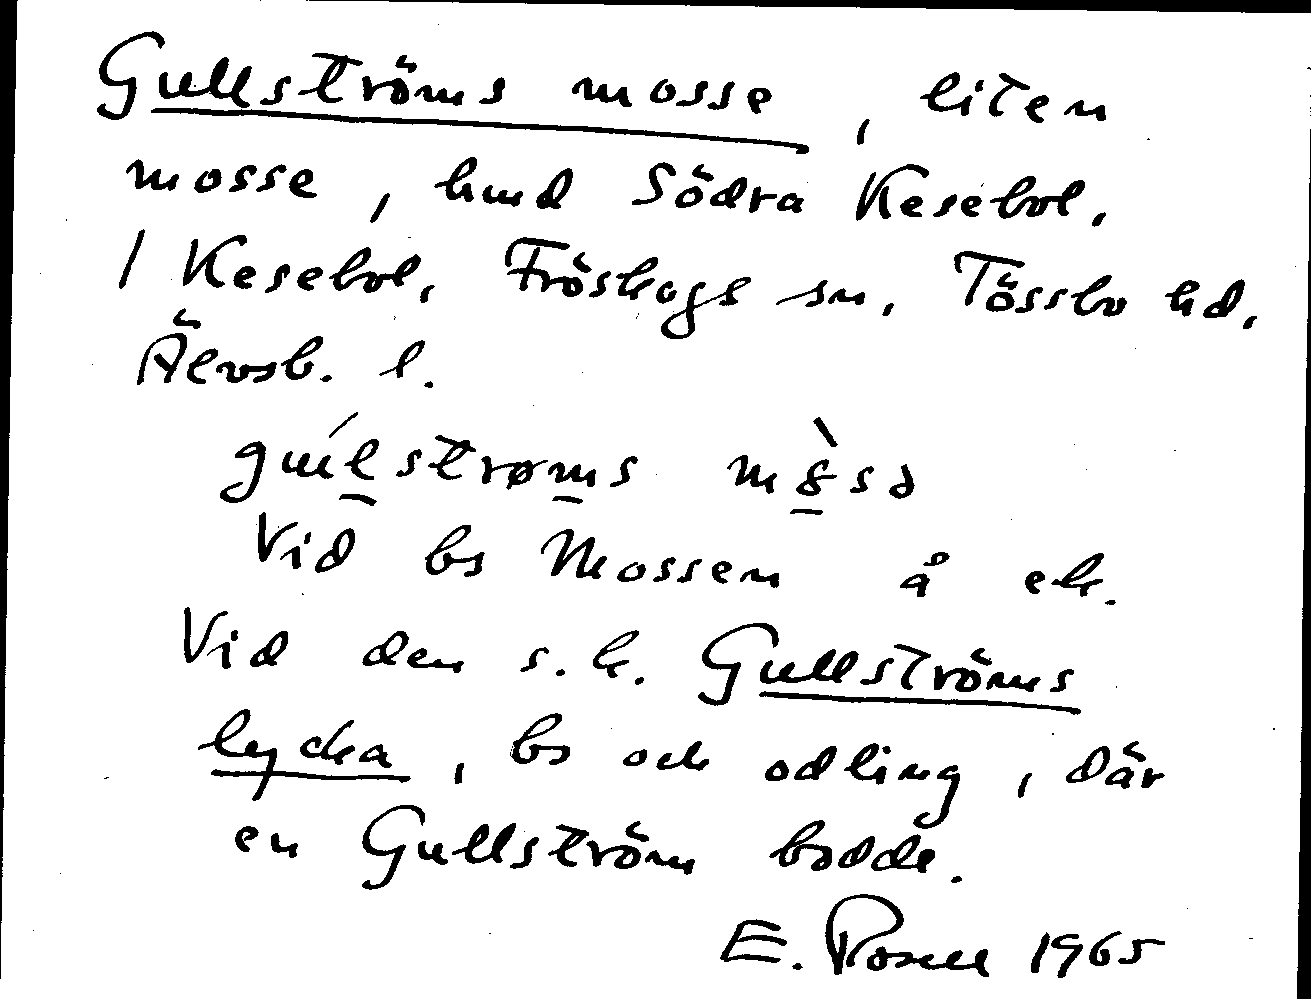 Gullströms mosse, liten
mosse, hmd Södra Kesebol.
/ Kesebol, Fröskogs sn, Tössbo hd,
Älvsb. l.
Vid bs Mossen å ek.
Vid den s.k. Gullströms
lycka, bs och odling, där
en Gullström bodde.
E. Rosell 1965